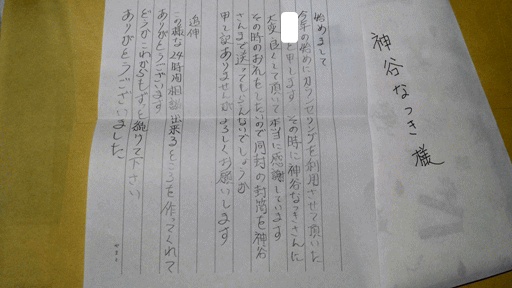 神谷なつき様
始めまして
今年の始めにカウンセリングを利用させて頂いた
と申します その時に神谷なつきさんに
大変良くして頂いて本当に感謝しています
その時のお礼をしたいので同封の封筒を神谷
さんまで送ってもらえないでしょうか
申し訳ありませんがよろしくお願いします
追伸
この様な24時間相談出来るところを作ってくれて
ありがとうございます
どうかこれからもずっと続けて下さい
ありがとうございました